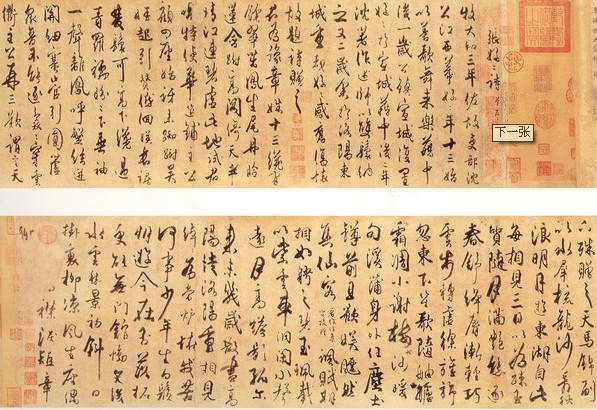 張好好詩
牧大和三年佐故吏部沈
公江西幕好好年十三始
以善歌舞来樂籍中
後一歲公鎮宣城復置
好好於宣城籍中後二年
沈著作述師以雙鬟納
之又二歲余於洛陽東
城重覩好好感舊傷懷
故題詩贈之
君為豫章姝十三纔有
餘翠茁鳳生尾丹臉
蓮含跗高閣倚天半
晴江連碧虛此地試君
唱特使華筵鋪主公
顧四座始訝来踟蹰吴
娃起引贊低佪暎長裾
雙鬟可高下纔過
青羅襦盼盼下垂袖
一聲離鳳呼繁絃迸
關紐塞管引圓蘆
衆音不能逐裊裊穿雲
衢主公再三歎謂言天
下殊贈之天馬錦副
以水犀梳龍沙看秋
浪明月遊東湖自此
每相見三日以為疎玉
質隨月滿艷態逐
春舒絳脣漸輕巧
雲步轉虛徐旌旆
忽東下笙歌隨舳艫
霜凋小謝樹沙暖
句溪蒲身外任塵土
罇前且歡娛飄然
集仙客諷賦期
相如聘之碧玉珮載
以紫雲車洞閉水聲
遠月高蟾影孤爾
来未幾歲散盡高
陽徒洛陽重相見
綽綽為當壚怪我苦
何事少年生白鬚
朋遊今在否落拓
更能無門館慟哭後
水雲秋景初斜日
掛衰柳凉風生座隅
襟淚短章
下一张